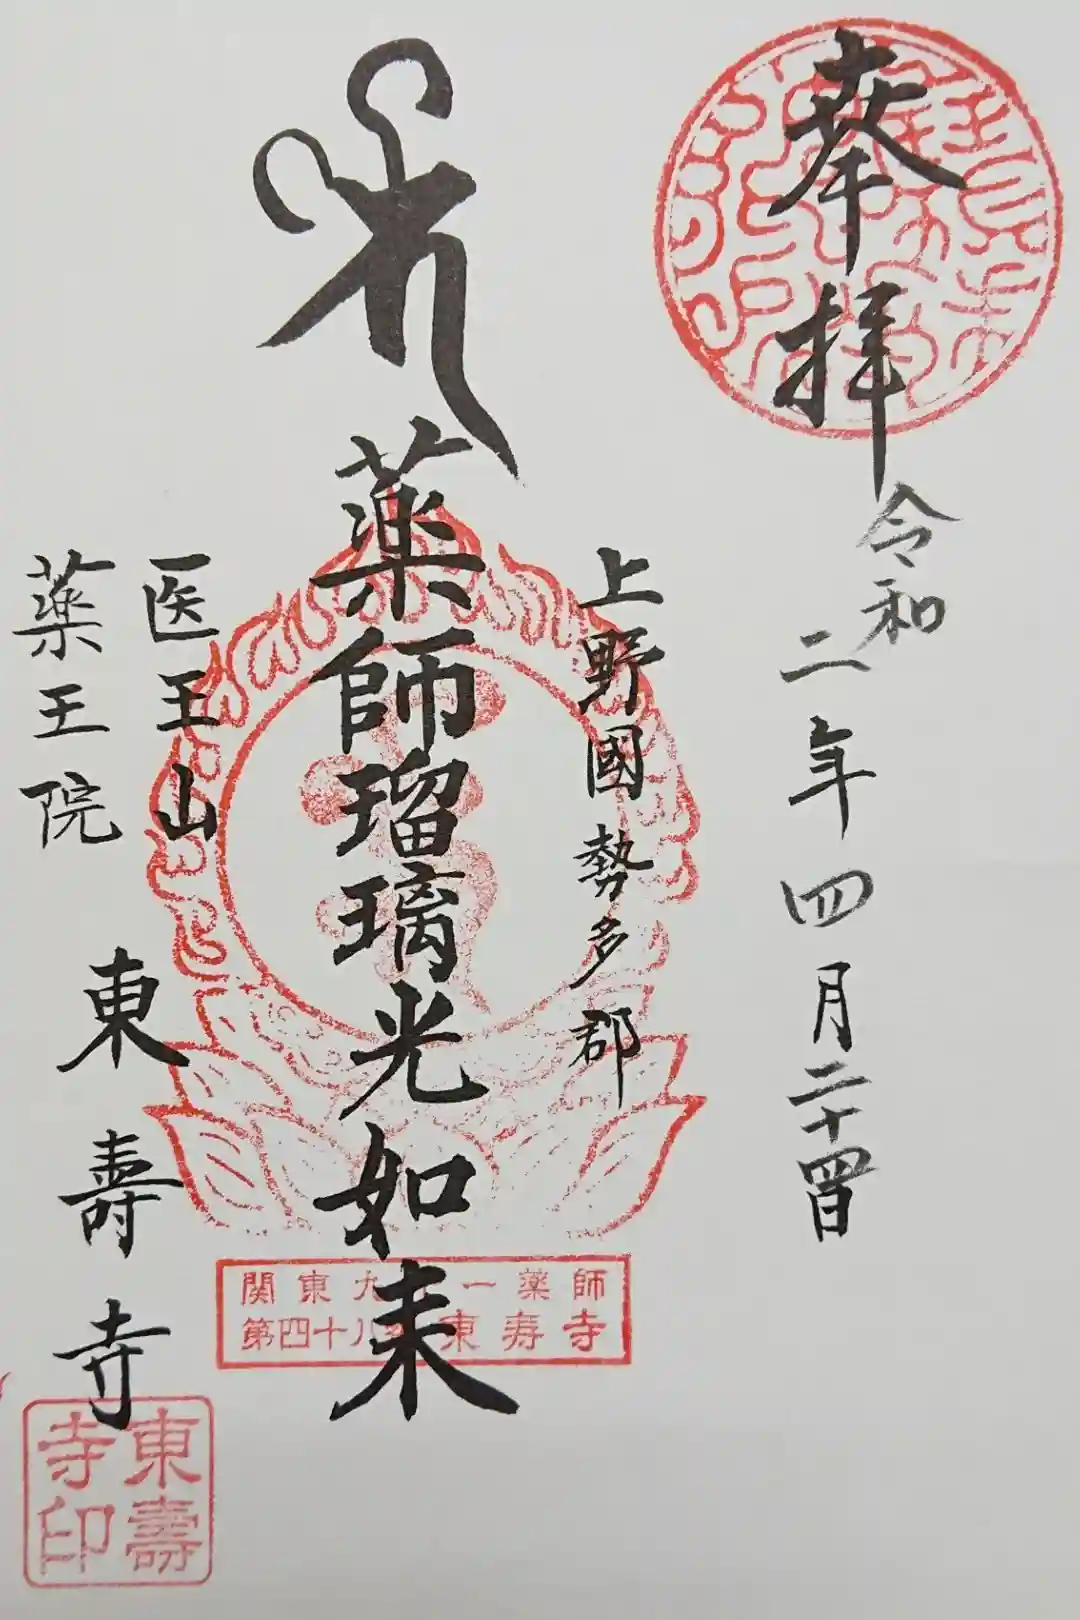 奉拝
令和二年四月二十四日
上野國勢多郡
薬師瑠璃光如来
医王山
薬王院
東壽寺
関東九十一薬師
第四十八 東寿寺
東壽寺印